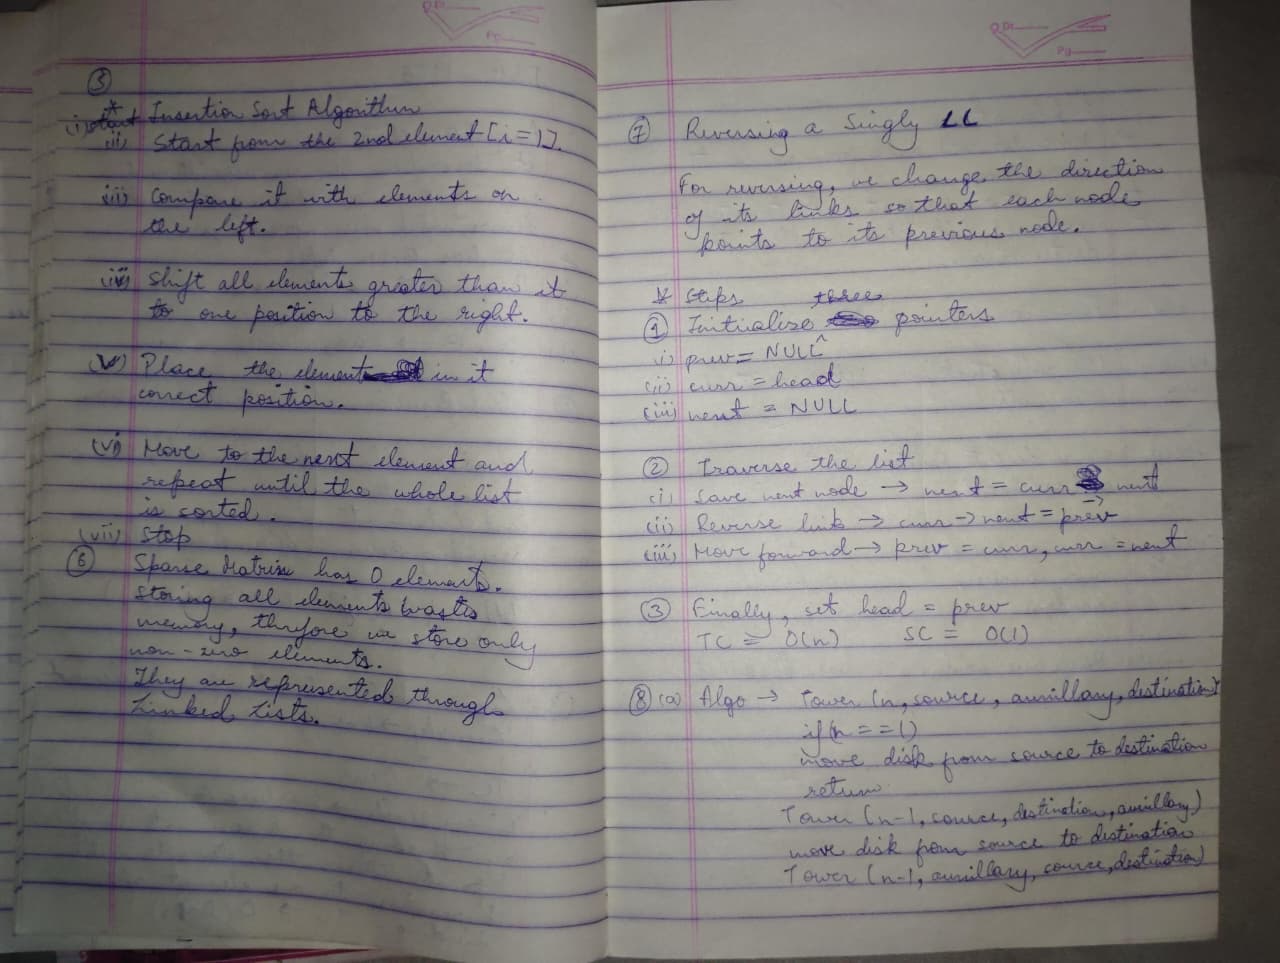 5
(i) Insertion Sort Algorithm
(ii) Start from the 2nd element [i=1].
(iii) Compare it with elements on
the left.
(iv) Shift all elements greater than it
to one position to the right.
(v) Place the element in it
correct position.
(vi) Move to the next element and
repeat until the whole list
is sorted.
(vii) Stop
6 Sparse Matrix has 0 elements.
Storing all elements wastes
memory, therfore we store only
non-zero elements.
They are represented through
Linked Lists.
Dt
Pg
7 Reversing a Singly LL
For reversing, we change the direction
of its links so that each node
points to its previous node.
* Steps
three
1 Initialize pointers
i) prev = NULL
(ii) curr = head
(iii) next = NULL
2 Traverse the list
(i) Save next node → next = curr → next
(ii) Reverse link → curr → next = prev
(iii) Move forward → prev = curr, curr = next
3 Finally, set head = prev
TC = O(n) SC = O(1)
8 (a) Algo → Tower (n, source, auxillary, destination)
if (n == 1)
move disk from source to destination
return
Tower (n-1, source, destination, auxillary)
move disk from source to destination
Tower (n-1, auxillary, source, destination)